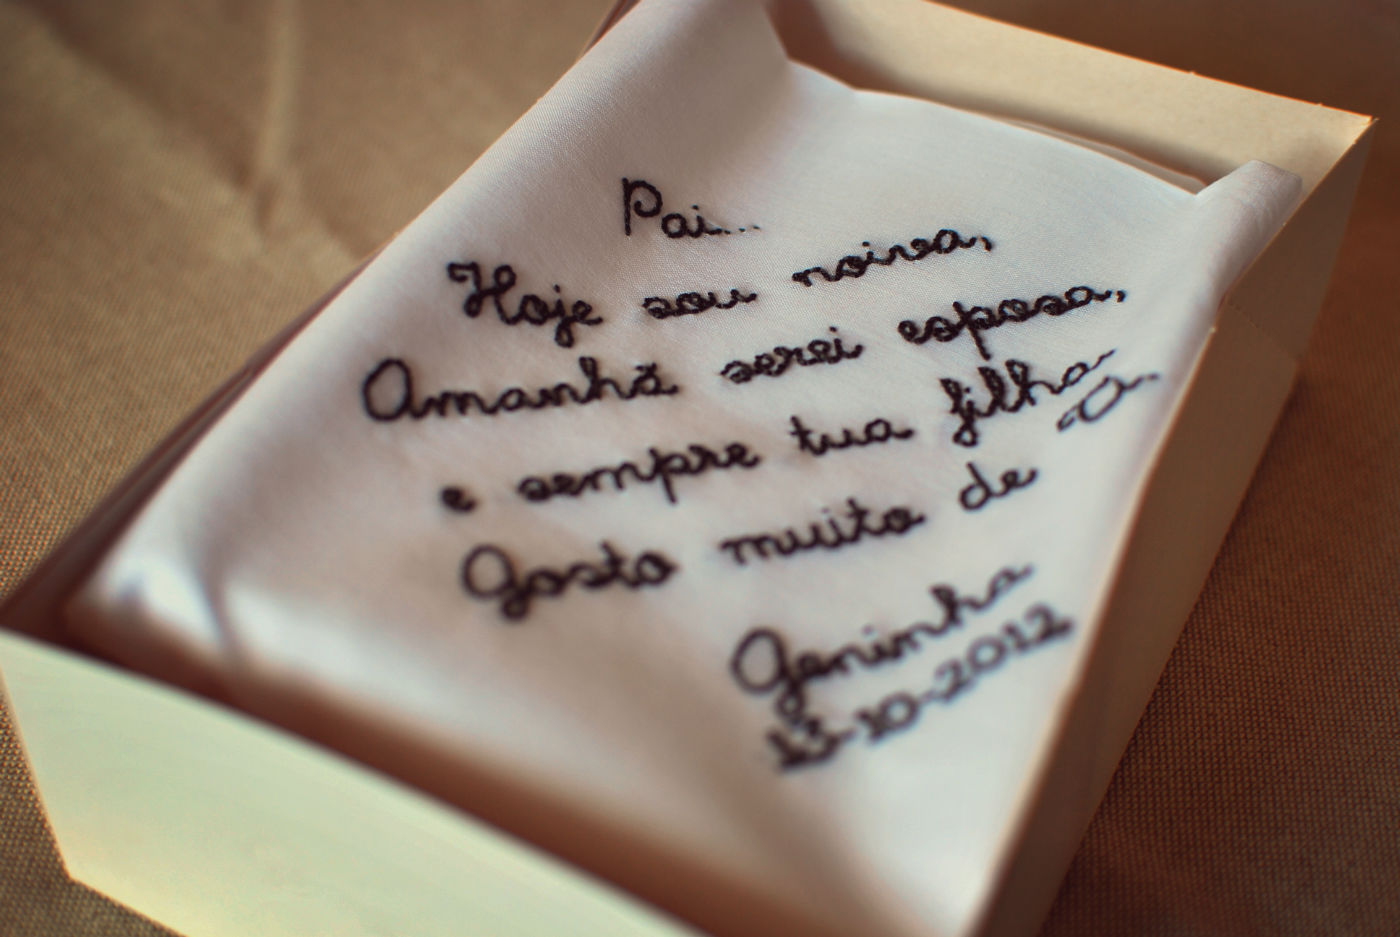 Pai...
Hoje sou noiva,
Amanhã serei esposa,
e sempre tua filha
Gosto muito de
Geninha
13-10-2012